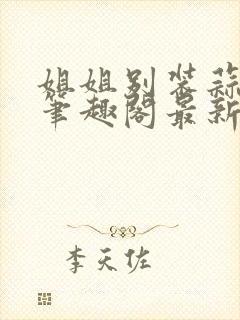 姐姐别装蒜
笔趣阁最新
李天佐